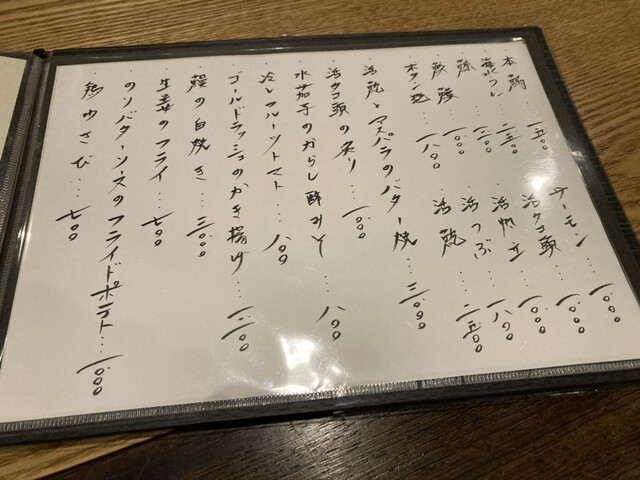 本鮪…二五〇〇
海水ウニ…二五〇〇
鰊…一二〇〇
鮫鰈…一〇〇〇
ボタン海老…一八〇〇
サーモン…一〇〇〇
活タコ頭…一〇〇〇
活帆立…一〇〇〇
活つぶ…一八〇〇
活鮑…二五〇〇
活鮑とアスパラのバター焼…三〇〇〇
活タコ頭の炙り…一〇〇〇
水茄子のからし酢みそ…八〇〇
冷しフルーツトマト…八〇〇
ゴールドラッシュのかき揚げ…一二〇〇
鰻の白焼き…三〇〇〇
生姜のフライ…七〇〇
のりバターソースのフライドポテト…一〇〇〇
鶏わさび…七〇〇